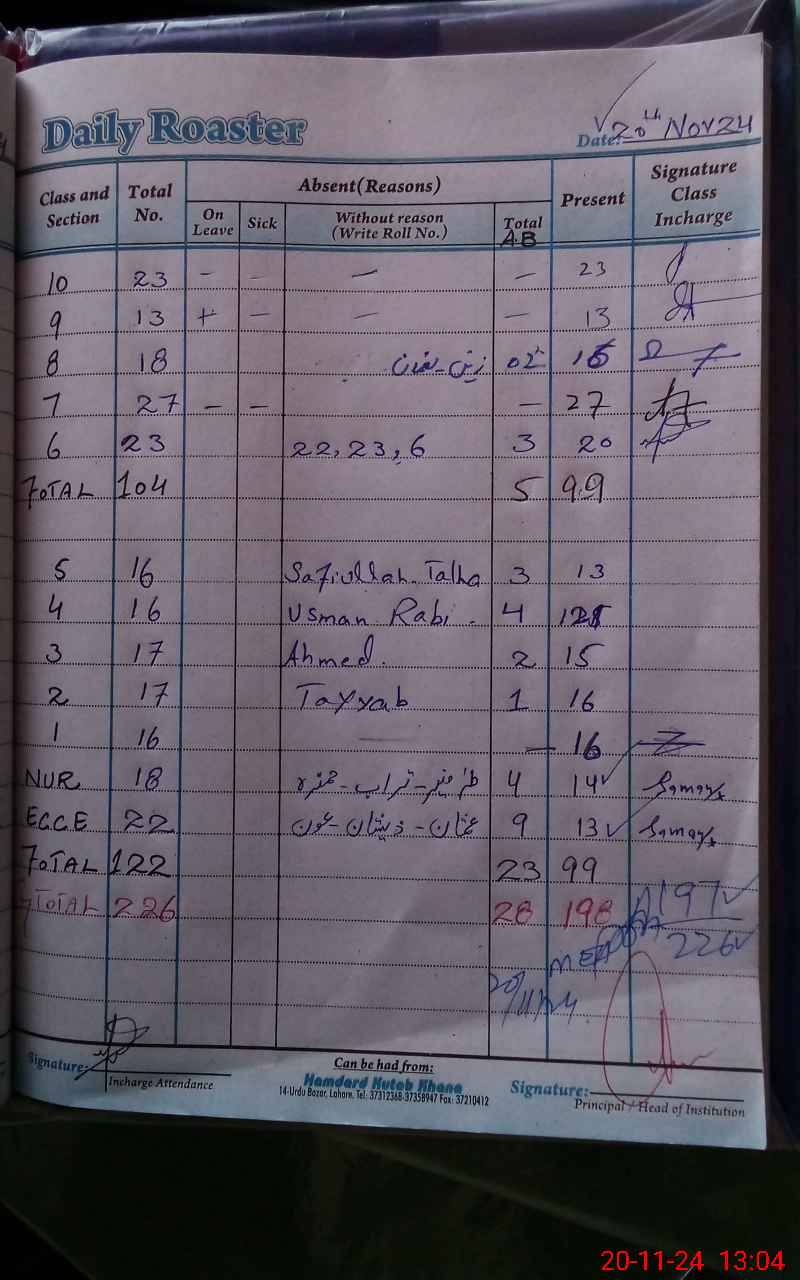 Daily Roaster
Date: 20th Nov 24
Class and Section Total No. Absent(Reasons) Present Signature Class Incharge
On Leave Sick Without reason (Write Roll No.) Total A.B
10 23 - - - - 23
9 13 + - - - 13
8 18 زین - 02 16
7 27 - - - 27
6 23 22, 23, 6 3 20
TOTAL 104 5 99
5 16 Safiullah. Talha 3 13
4 16 Usman Rabi. 4
3 17 Ahmed. 2 15
2 17 Tayyab 1 16
1 16 — — 16
NUR 18 تراب - حمزہ 4 14✓
ECCE 22 عثمان - ذیشان - عون 9 13✓
TOTAL 122 23 99
TOTAL 226 28 198 197✓
226✓
MEA
20/11/24
Signature:
Incharge Attendance
Can be had from:
Hamdard Kutab Khana
14-Urdu Bazar, Lahore. Tel: 37312368-37358947 Fax: 37210412
Signature:
Principal / Head of Institution
20-11-24 13:04